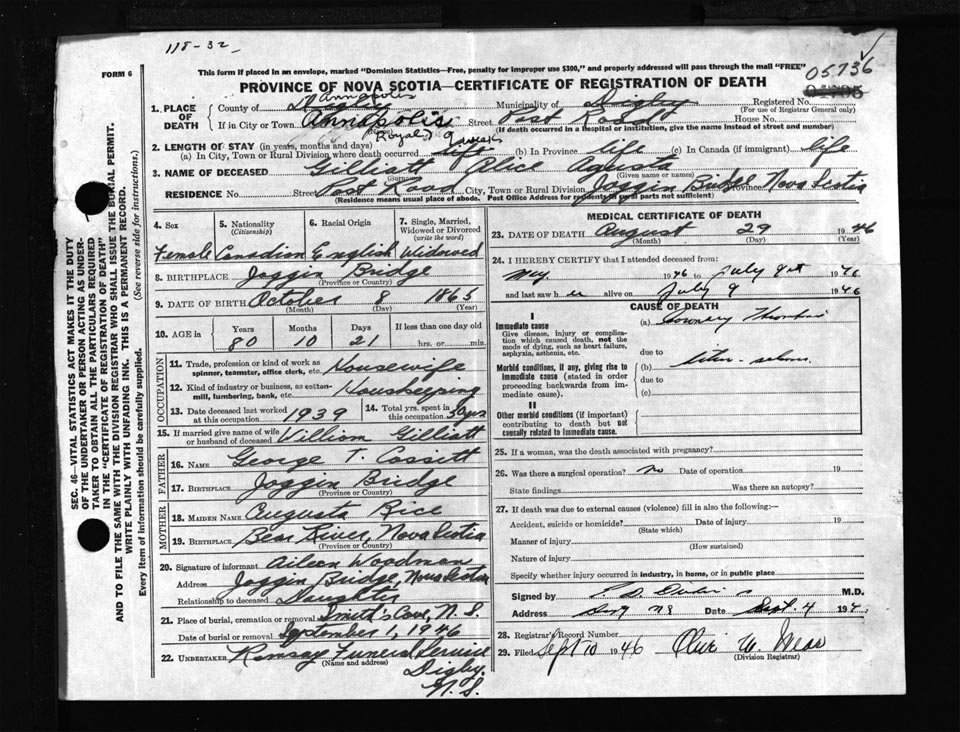 118-32
FORM 6
This form if placed in an envelope, marked "Dominion Statistics—Free, penalty for improper use $300," and properly addressed will pass through the mail "FREE"
05736
PROVINCE OF NOVA SCOTIA—CERTIFICATE OF REGISTRATION OF DEATH
05705
Annapolis
1. PLACE OF DEATH County of Digby Municipality of Digby Registered No. (For use of Registrar General only)
If in City or Town Annapolis Street Post Road House No.
(Name) (If death occurred in a hospital or institution, give the name instead of street and number)
Royal) 9 weeks
2. LENGTH OF STAY (in years, months and days)
(a) In City, Town or Rural Division where death occurred life (b) In Province life (c) In Canada (if immigrant) life
3. NAME OF DECEASED Gilliatt Alice Agusta
(Surname) (Given name or names)
RESIDENCE No. Street Post Road City, Town or Rural Division Joggin Bridge Province Nova Scotia
(Residence means usual place of abode. Post Office Address for residents in rural parts not sufficient)
4. Sex 5. Nationality (Citizenship) 6. Racial Origin 7. Single, Married, Widowed or Divorced (write the word)
Female Canadian English Widowed
8. BIRTHPLACE Joggin Bridge
(Province or Country)
9. DATE OF BIRTH October 8 1865
(Month) (Day) (Year)
10. AGE in Years Months Days If less than one day old
80 10 21 hrs. or min.
OCCUPATION
11. Trade, profession or kind of work as spinner, teamster, office clerk, etc. Housewife
12. Kind of industry or business, as cotton-mill, lumbering, bank, etc. Housekeeping
13. Date deceased last worked at this occupation 1939 14. Total yrs. spent in this occupation 50 yrs
15. If married give name of wife or husband of deceased William Gilliatt
FATHER
16. NAME George T. Cossett
17. BIRTHPLACE Joggin Bridge
(Province or Country)
MOTHER
18. MAIDEN NAME Augusta Rice
19. BIRTHPLACE Bear River, Nova Scotia
(Province or Country)
20. Signature of informant Aileen Woodman
Address Joggin Bridge, Nova Scotia
Relationship to deceased Daughter
21. Place of burial, cremation or removal Smith's Cove, N.S.
Date of burial or removal September 1, 1946
22. UNDERTAKER Ramsay Funeral Service
(Name and address) Digby,
N.S.
MEDICAL CERTIFICATE OF DEATH
23. DATE OF DEATH August 29 1946
(Month) (Day) (Year)
24. I HEREBY CERTIFY that I attended deceased from:
May 1946 to July 9th 1946
and last saw her alive on July 9 1946
CAUSE OF DEATH
I
Immediate cause (a) Coronary Thrombosis
Give disease, injury or complication which caused death, not the mode of dying, such as heart failure, asphyxia, asthenia, etc.
due to
Morbid conditions, if any, giving rise to immediate cause (stated in order proceeding backwards from immediate cause) (b)
due to
(c)
II
Other morbid conditions (if important) contributing to death but not causally related to immediate cause.
25. If a woman, was the death associated with pregnancy?
26. Was there a surgical operation? no Date of operation 19
State findings Was there an autopsy?
27. If death was due to external causes (violence) fill in also the following:—
Accident, suicide or homicide? Date of injury 19
(State which)
Manner of injury
(How sustained)
Nature of injury
Specify whether injury occurred in industry, in home, or in public place
Signed by M.D.
Address Digby NS Date Sept. 4 194
28. Registrar's Record Number
29. Filed Sept 10 1946 Olive W.
(Division Registrar)
SEC. 46—VITAL STATISTICS ACT MAKES IT THE DUTY
OF THE UNDERTAKER OR PERSON ACTING AS UNDERTAKER TO OBTAIN ALL THE PARTICULARS REQUIRED
IN THE "CERTIFICATE OF REGISTRATION OF DEATH"
AND TO FILE THE SAME WITH THE DIVISION REGISTRAR WHO SHALL ISSUE THE BURIAL PERMIT.
WRITE PLAINLY WITH UNFADING INK. THIS IS A PERMANENT RECORD.
Every item of information should be carefully supplied. (See reverse side for instructions.)